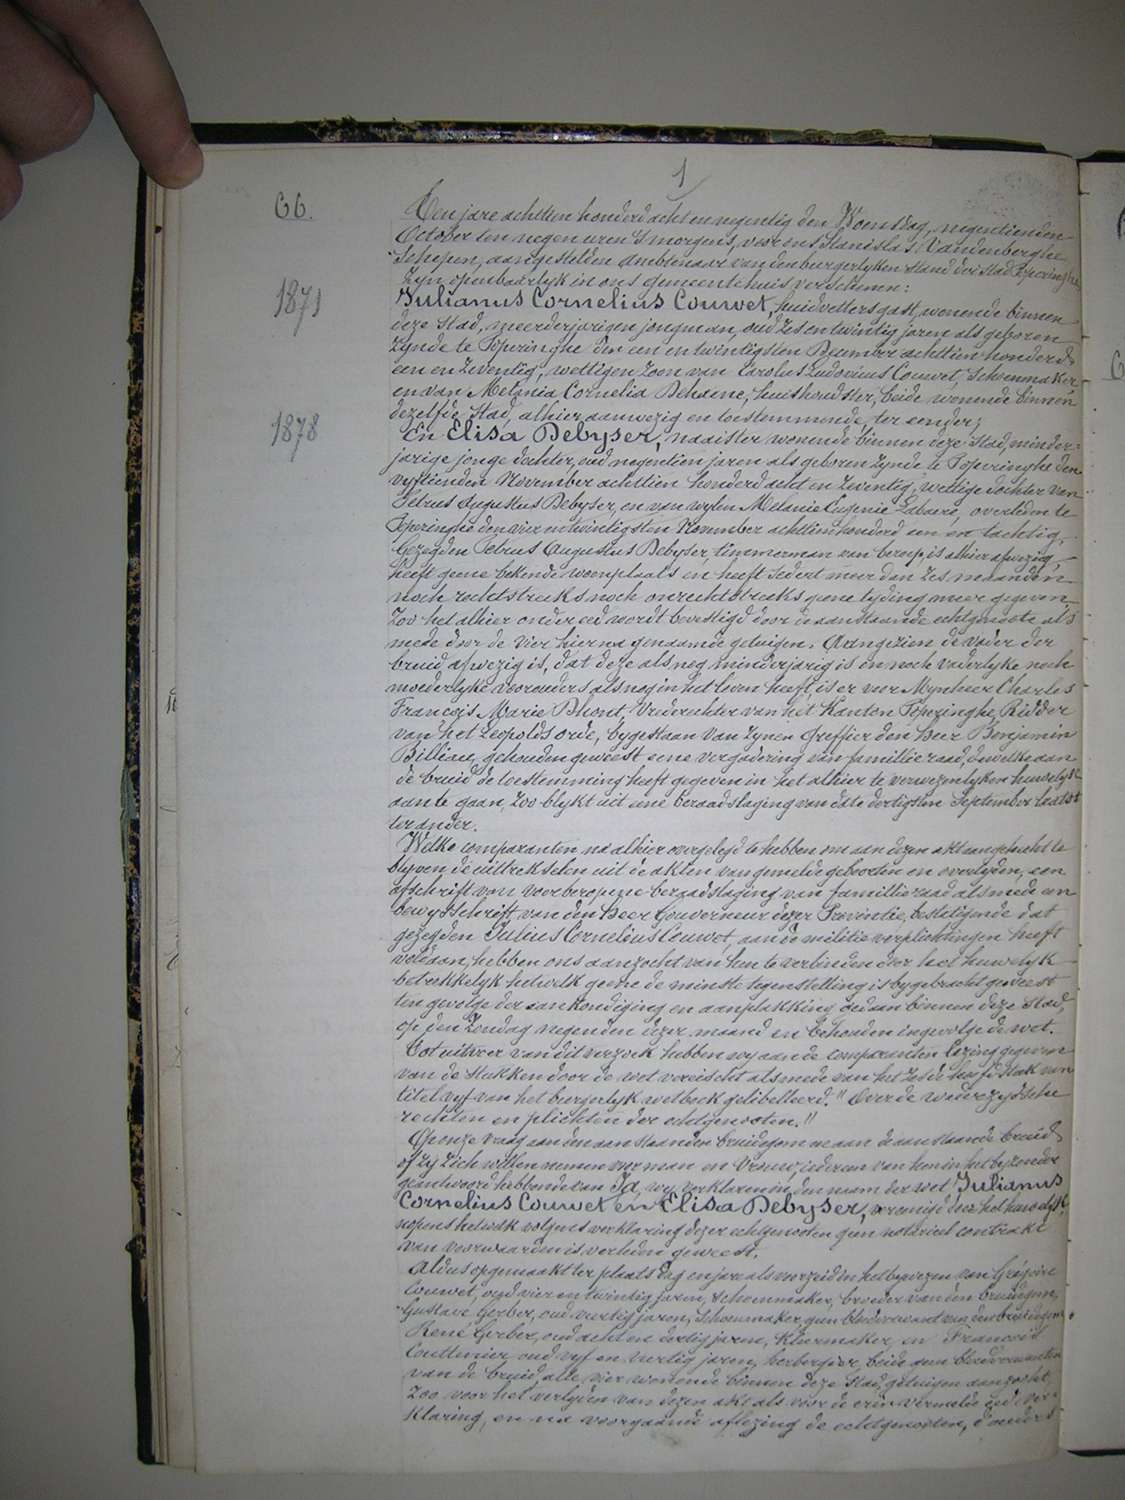 1
66.
Ten jare achttien honderd acht en negentig den Woensdag, negentienden
October ten negen uren 's morgens, voor ons Stanislas Vandenberghe
Schepen, aangestelden Ambtenaar van den burgerlyken stand der Stad Poperinghe
zyn openbaarlyk in ons gemeentehuis verschenen:
1871
Julianus Cornelius Couwet, huidvettersgast, wonende binnen
deze Stad, meerderjarigen jongman, oud zes en twintig jaren als geboren
zynde te Poperinghe den een en twintigsten December achttien honderd
een en zeventig, wettigen zoon van Carolus Ludovicus Couwet, schoenmaker
en van Melania Cornelia Dehaene, huishoudster, beide wonende binnen
dezelfde Stad, alhier aanwezig en toestemmende, ter eender;
1878
En Elisa Debyser, naaister wonende binnen deze Stad, minder-
jarige jonge dochter, oud negentien jaren als geboren zynde te Poperinghe den
vyftienden November achttien honderd acht en zeventig, wettige dochter van
Petrus Augustus Debyser, en van wylen Melanie Eugenie Labaere, overleden te
Poperinghe den vier en twintigsten November achttien honderd een en tachtig,
Gezegden Petrus Augustus Debyser, timmerman van beroep, is alhier afwezig
heeft geene bekende woonplaats en heeft sedert meer dan zes maanden
noch rechtstreeks noch onrechtstreeks geene tyding meer gegeven,
Zoo het alhier onder eed wordt bevestigd door de aanstaande echtgenoote als
mede door de vier hierna genaamde getuigen. Aangezien de vader der
bruid afwezig is, dat deze als nog minderjarig is en noch vaderlyke noch
moederlyke voorouders als nog in het leven heeft, is er voor Mynheer Charles
François Marie Dhont, Vrederechter van het Kanton Poperinghe, Ridder
van het Leopolds orde, bygestaan van zynen Greffier den Heer Benjamin
Billiau, gehouden geweest eene vergadering van familieraad, dewelke aan
de bruid de toestemming heeft gegeven in het alhier te verwezenlyken huwelyk
aan te gaan, zoo blykt uit eene beraadslaging van date dertigsten September laatst
ter ander.
Welke comparanten na alhier overgelegd te hebben om aan dezen akt aangehecht te
blyven de uittrekselen uit de akten van gemelde geboorten en overlyden, een
afschrift van voorberoepene beraadslaging van familieraad alsmede een
bewysschrift van den Heer Gouverneur dezer Provintie, bestatigende dat
gezegden Julius Cornelius Couwet, aan de militie verplichtingen heeft
voldaan, hebben ons aanzocht van hun te verbinden door het huwelyk
betrekkelyk hetwelk geene de minste tegenstelling is bygebracht geweest
ten gevolge der aankondiging en aanplakking gedaan binnen deze Stad,
op den Zondag negenden dezer maand en behouden ingevolge de wet.
Tot uitvoer van dit verzoek hebben wy aan de comparanten lezing gegeven
van de stukken door de wet vereischt alsmede van het zesde hoofdstuk van
titel vyf van het burgerlyk wetboek gelibelleerd: "Over de wederzydsche
rechten en plichten der echtgenooten."
Op onze vraag aan den aanstaanden bruidegom en aan de aanstaande bruid
of zy zich willen nemen voor man en vrouw, iedereen van hen in het byzonder
geantwoord hebbende van Ja, wy verklaren in den naam der wet Julianus
Cornelius Couwet en Elisa Debyser, vereenigd door het huwelyk,
nopens hetwelk volgens verklaring dezer echtgenooten geen notarieel contrakt
van voorwaarden is verleden geweest.
Aldus opgemaakt ter plaats dag en jare als voorzeid in het bywezen van Grégoire
Couwet, oud vier en twintig jaren, schoenmaker, broeder van den bruidegom,
Gustave Gerber, oud veertig jaren, schoenmaker, geen bloedverwant van den bruidegom
René Gerber, oud acht en dertig jaren, kleermaker, en François
Couttenier, oud vyf en veertig jaren, herbergier, beide geen bloedverwanten
van de bruid, alle vier wonende binnen deze Stad, getuigen aanzocht
Zoo voor het verlyden van dezen akt als voor de erin vermelde eed ver-
klaring, en na voorgaande aflezing de echtgenooten, d'ouders